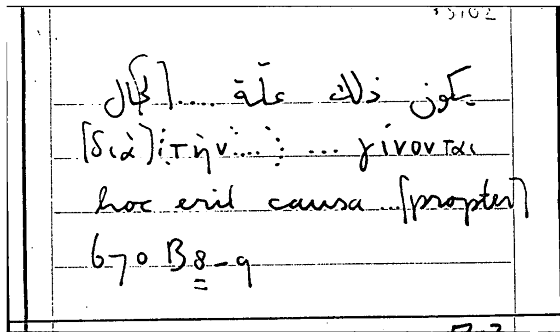 يكون ذلك علّة .... [لحال
[διὰ] τὴν ... : ... γίνονται
hoc erit causa [propter]
670 B8-9